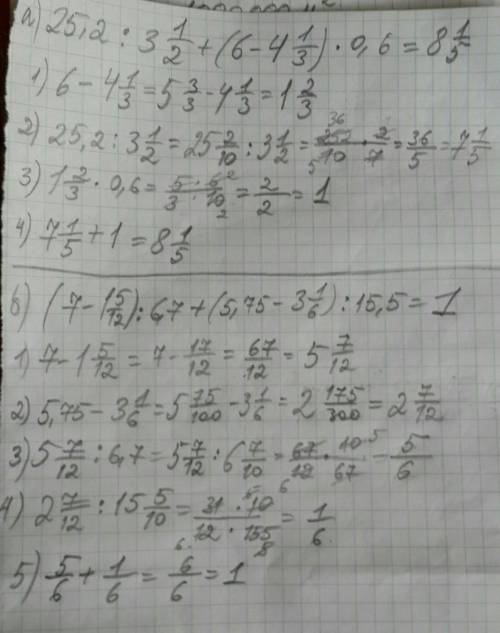 а) 25,2 : 3 1/2 + (6 - 4 1/3) · 0,6 = 8 1/5
1) 6 - 4 1/3 = 5 3/3 - 4 1/3 = 1 2/3
2) 25,2 : 3 1/2 = 25 2/10 : 3 1/2 = 252/10 · 2/7 = 36/5 = 7 1/5
3) 1 2/3 · 0,6 = 5/3 · 6/10 = 2/2 = 1
4) 7 1/5 + 1 = 8 1/5
в) (7 - 1 5/12) : 6,7 + (5,75 - 3 1/6) : 15,5 = 1
1) 7 - 1 5/12 = 7 - 17/12 = 67/12 = 5 7/12
2) 5,75 - 3 1/6 = 5 75/100 - 3 1/6 = 2 175/300 = 2 7/12
3) 5 7/12 : 6,7 = 5 7/12 : 6 7/10 = 67/12 · 10/67 = 5/6
4) 2 7/12 : 15 5/10 = 31 · 10/12 · 155 = 1/6
5) 5/6 + 1/6 = 6/6 = 1